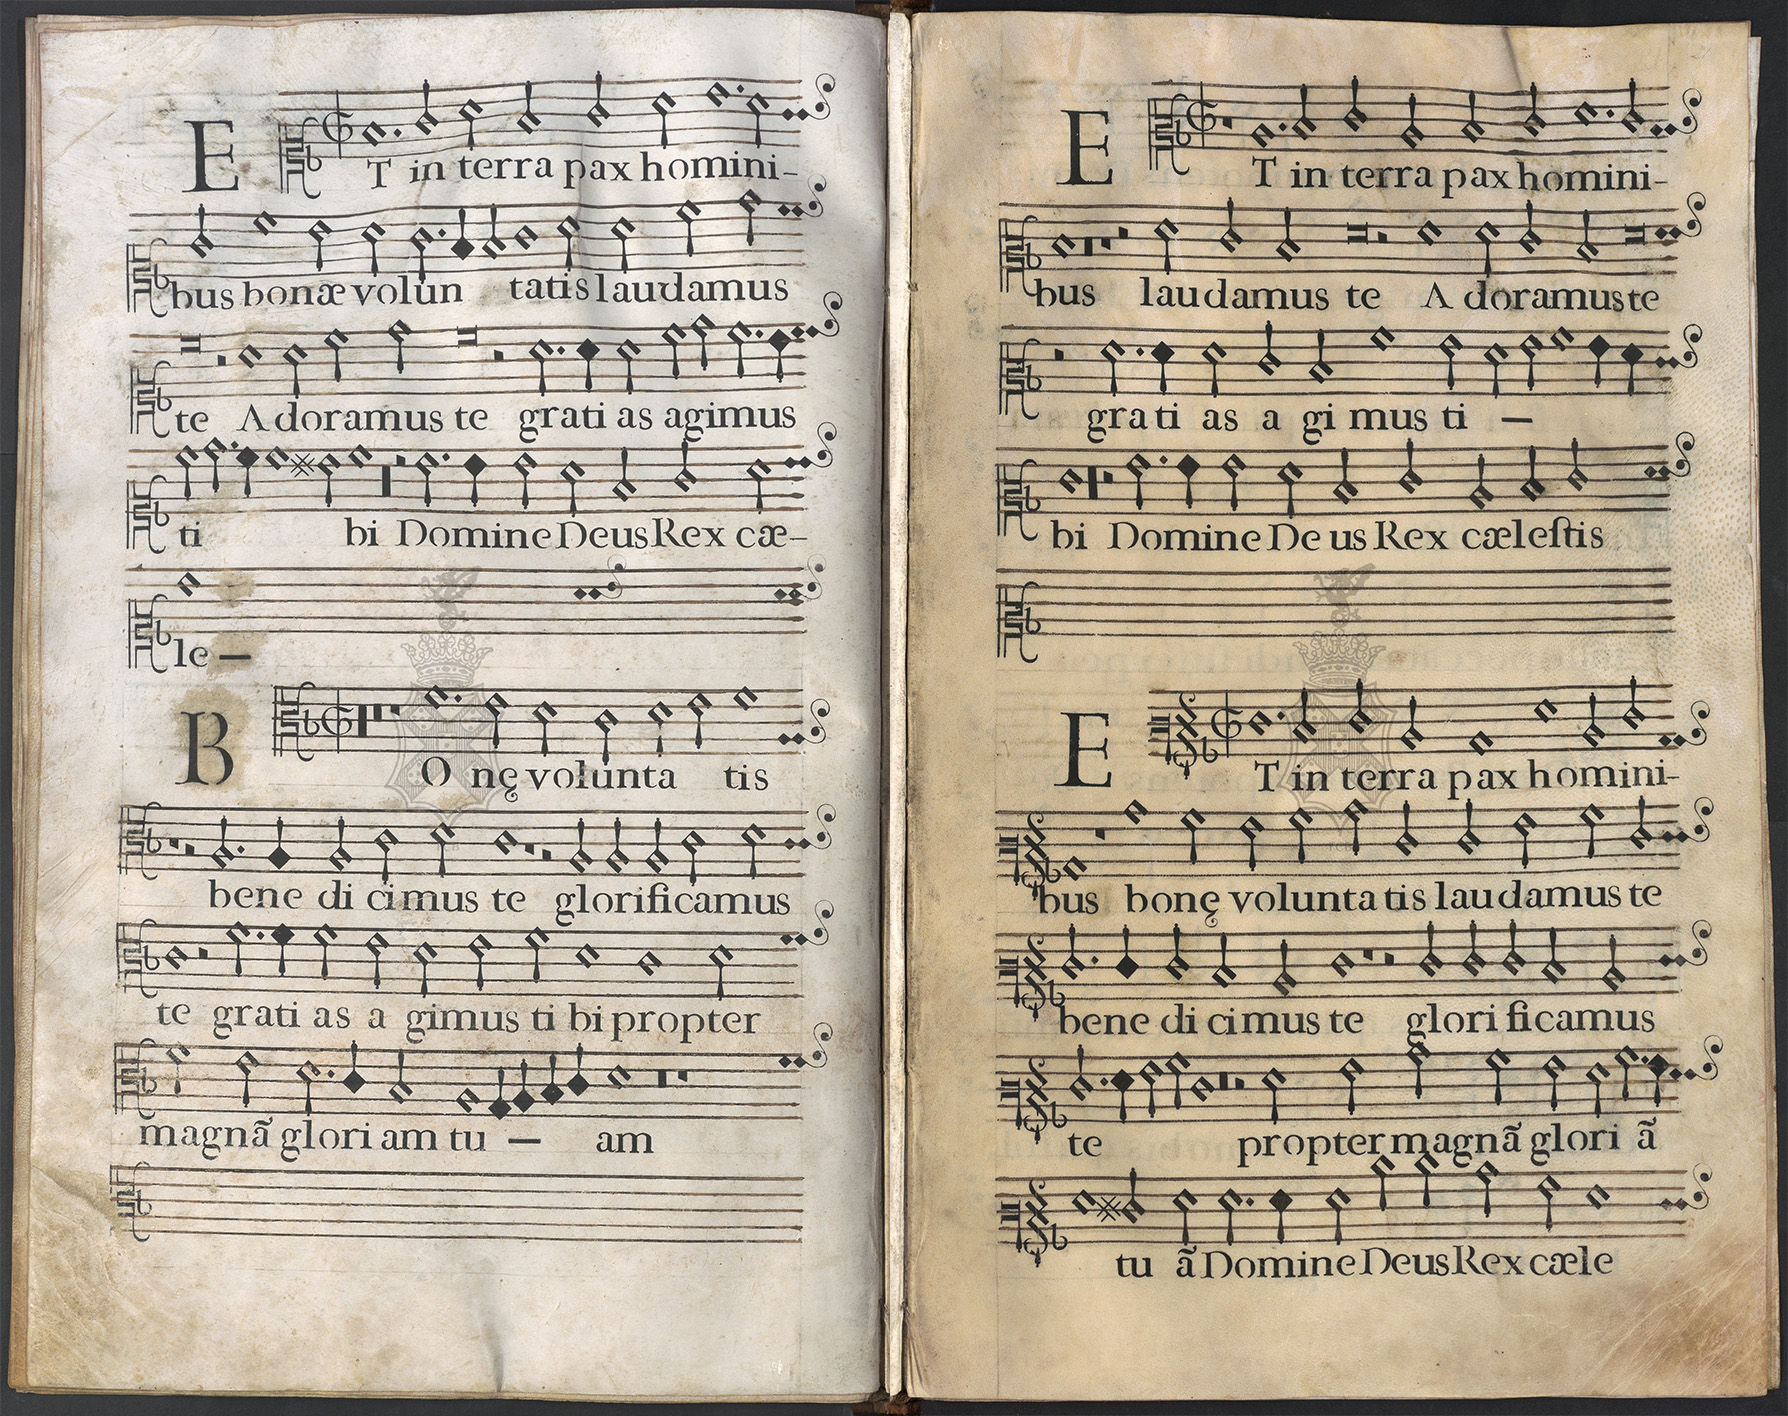 ET in terra pax homini-
bus bonæ volun tatis laudamus
te Adoramus te grati as agimus
ti bi Domine Deus Rex cæ-
le —
BO nę volunta tis
bene di cimus te glorificamus
te grati as a gimus ti bi propter
magnã glori am tu — am
ET in terra pax homini-
bus laudamus te A doramus te
grati as a gi mus ti —
bi Domine De us Rex cæleſtis
ET in terra pax homini-
bus bonę volunta tis laudamus te
bene di cimus te glori ficamus
te propter magnã glori ã
tu ã Domine Deus Rex cæle